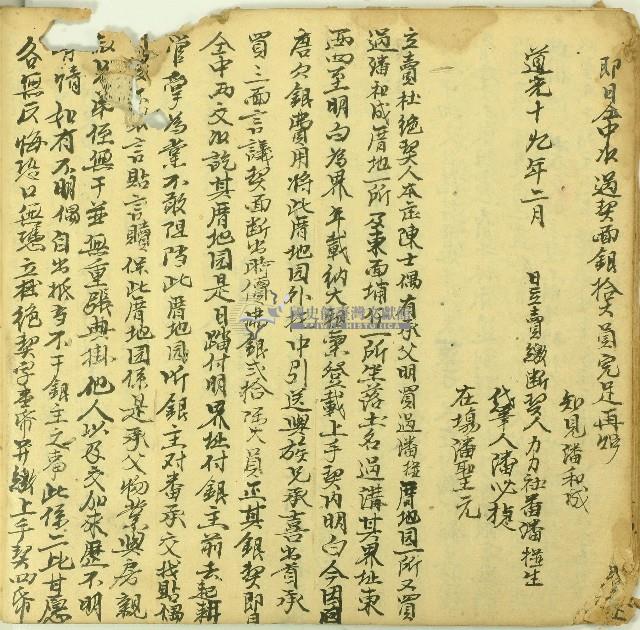 即日仝中收過契面銀拾大員完足再炤
知見潘和成
道光十九年二月 日立賣繳斷契人力力社番潘橙生
代筆人潘必捷
在塲潘聖元
立賣杜絕契人本庄陳士偶有承父明買過潘橙厝地田一所又買
過潘和成厝地一所 東面埔 一所坐落土名過溝其界址東
西四至明白為界年載納大租粟 登載上手契內明白今因
唐欠銀費用將此厝地田外托中引送與族兄承喜出首承
買三面言議契面斷出時價佛銀貳拾陸大員正其銀契即日
仝中両交收訖其厝地田是日踏付明界址付銀主前去起耕
管掌為業不敢阻擋此厝地田所銀主对番承交找貼偶
言貼言贖保此厝地田係是承父物業與房親
無干並無重張典掛他人以及交加來歷不明
情如有不明偶自出抵當不干銀主之事此係二比甘愿
各無反悔恐口無憑立杜絕契字壹帋并繳上手契四帋